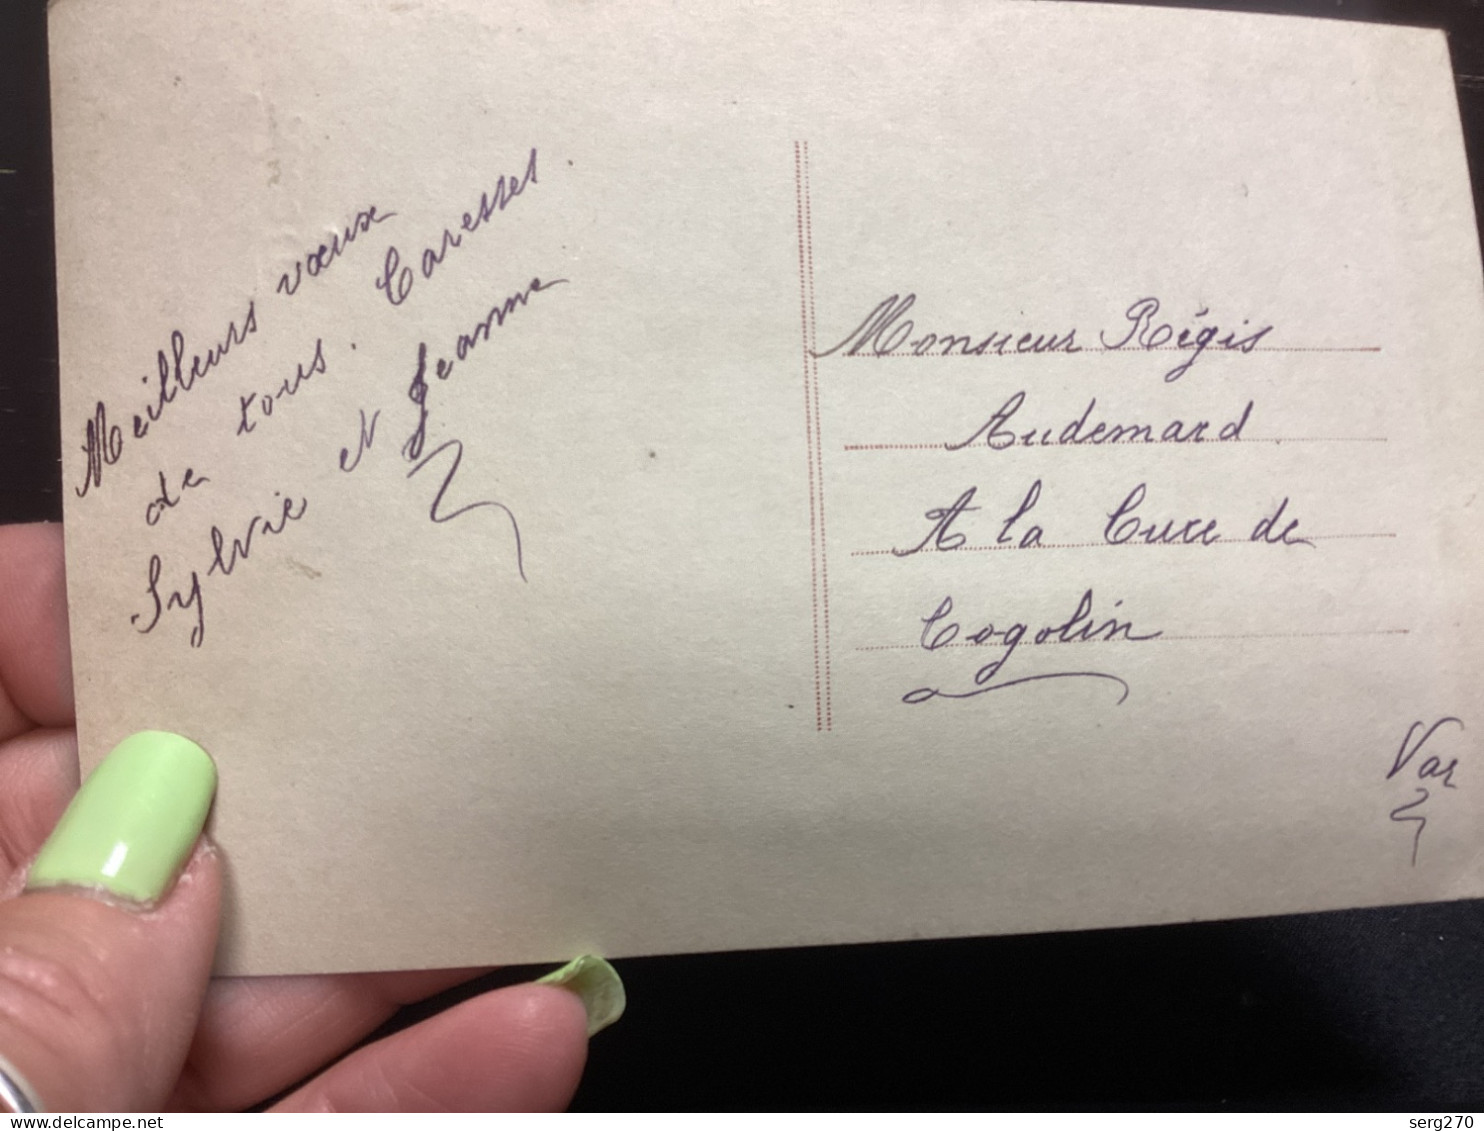 Meilleurs vœux
de tous. Caresses.
Sylvie et Jeanne
Monsieur Régis
Audemard
A la Cure de
Cogolin
Var
delcampe.net
serg270